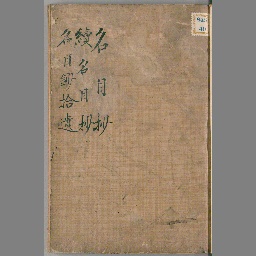 名目抄
續名目抄
名目鈔拾遺